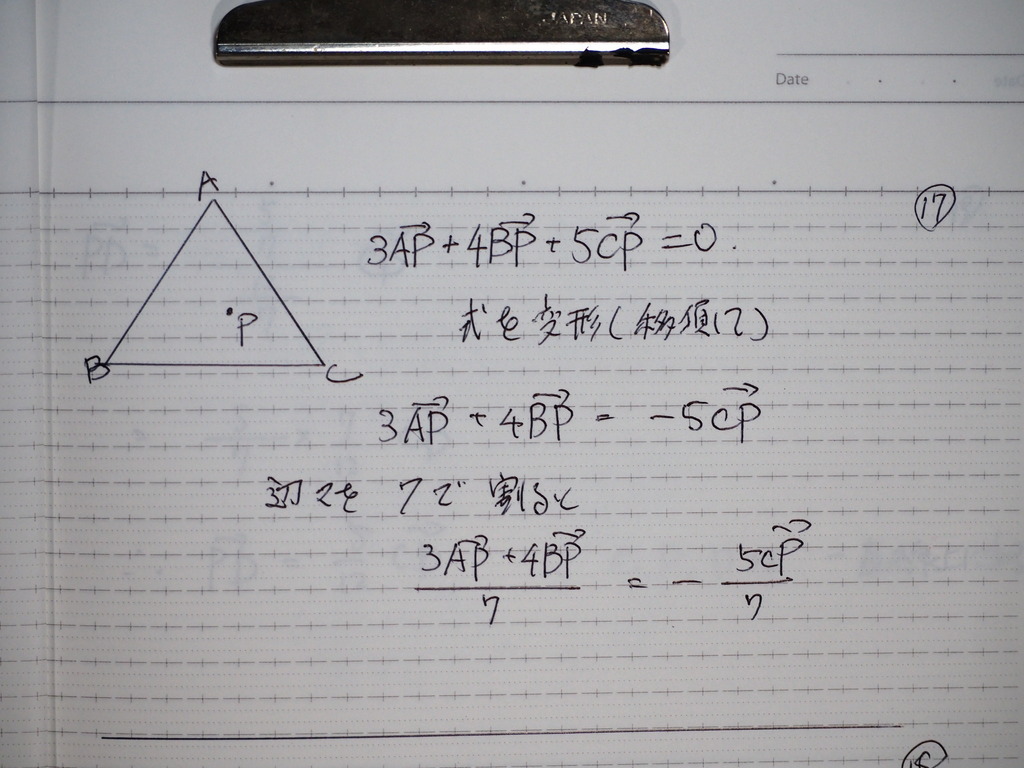 JAPAN
Date
⑰
A
B
C
P
3AP→ + 4BP→ + 5CP→ = 0.
式を変形(移項して)
3AP→ + 4BP→ = -5CP→
辺々を 7で 割ると
(3AP→ + 4BP→)/7 = - 5CP→/7